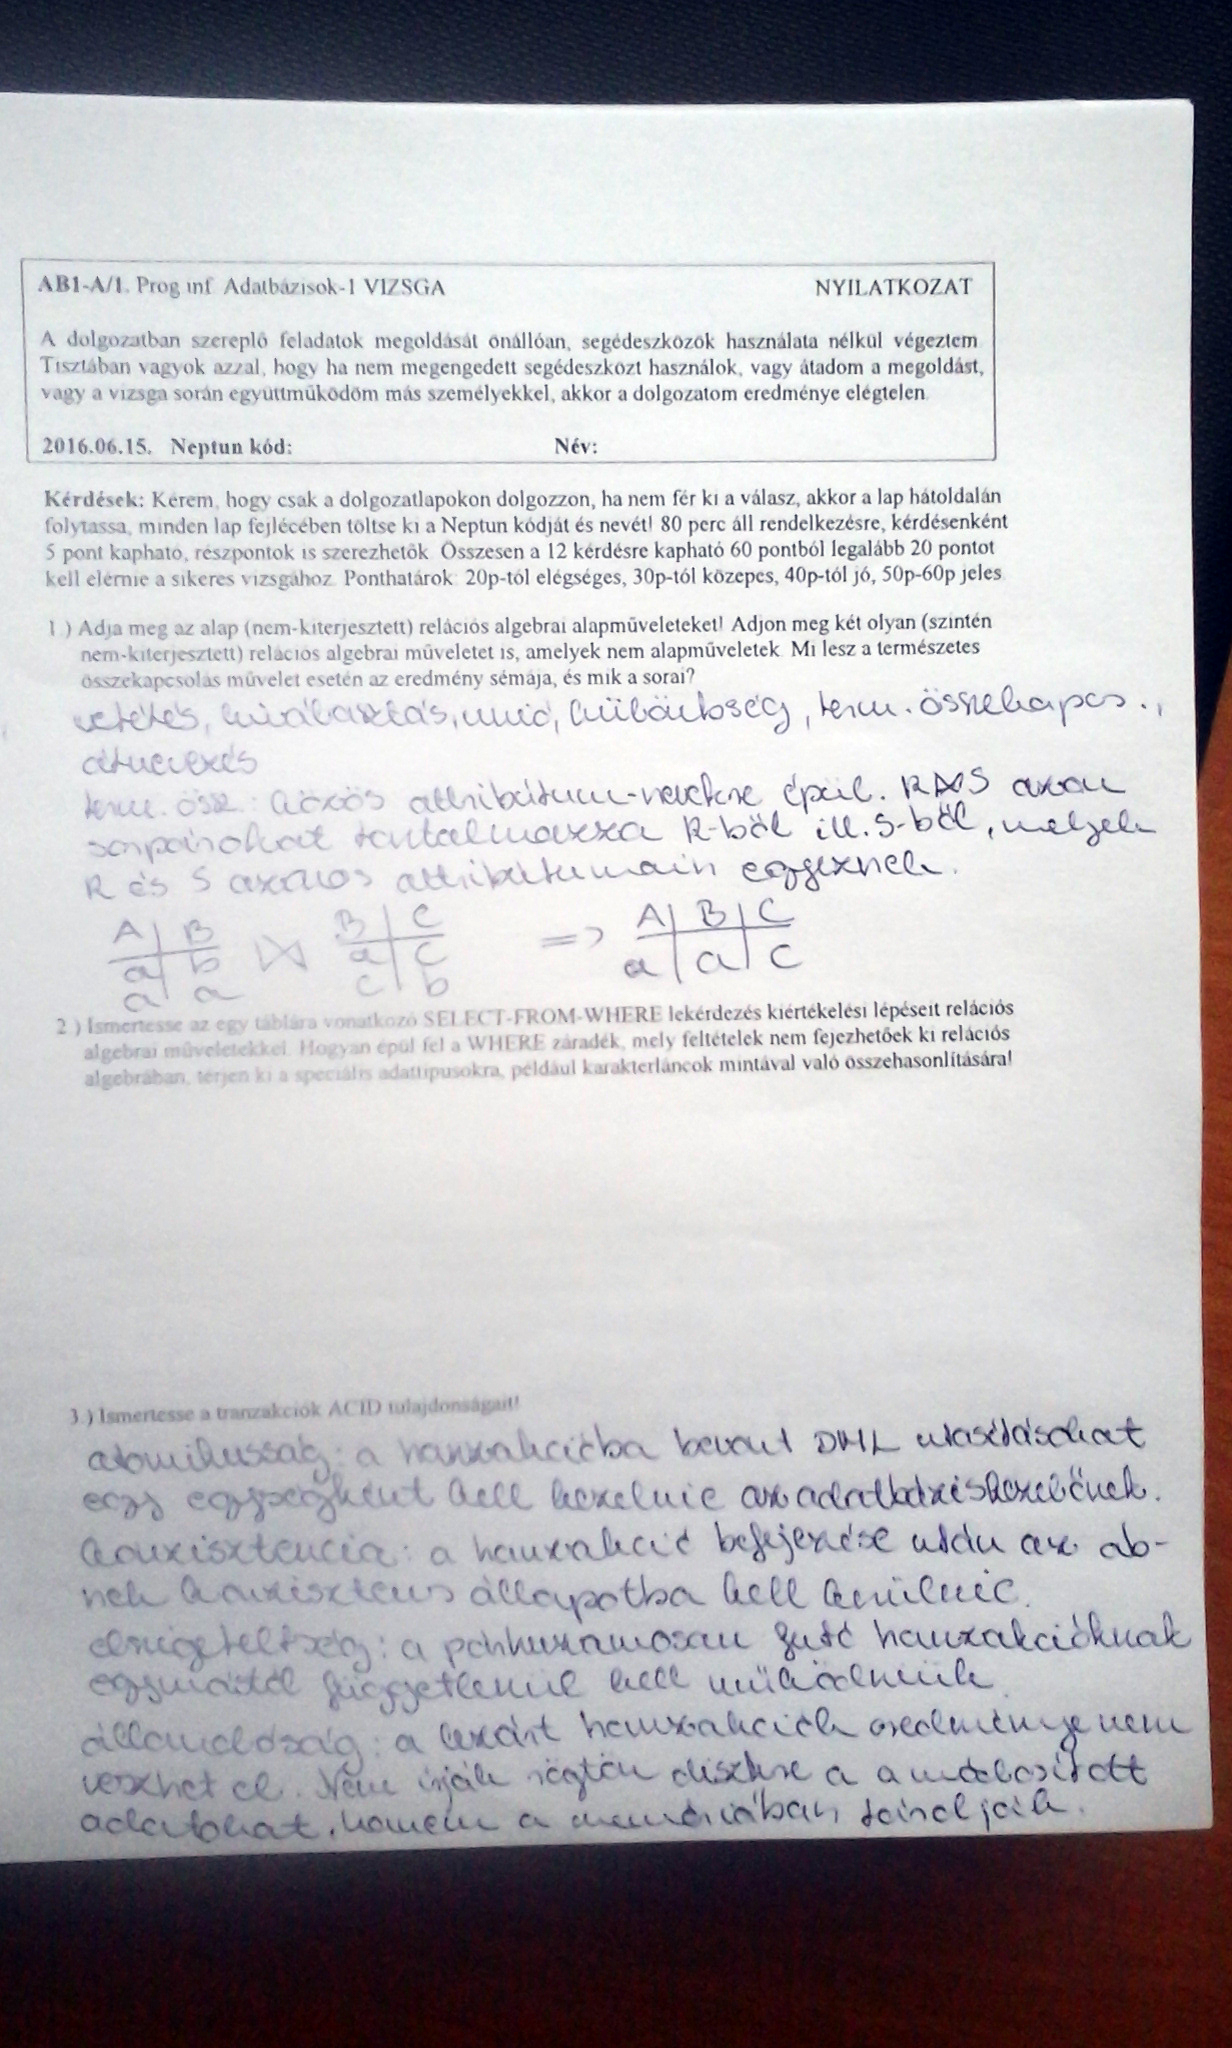 AB1-A/1. Prog inf Adatbázisok-1 VIZSGA NYILATKOZAT
A dolgozatban szereplő feladatok megoldását önállóan, segédeszközök használata nélkül végeztem
Tisztában vagyok azzal, hogy ha nem megengedett segédeszközt használok, vagy átadom a megoldást,
vagy a vizsga során együttműködöm más személyekkel, akkor a dolgozatom eredménye elégtelen
2016.06.15. Neptun kód: Név:
Kérdések: Kérem, hogy csak a dolgozatlapokon dolgozzon, ha nem fér ki a válasz, akkor a lap hátoldalán
folytassa, minden lap fejlécében töltse ki a Neptun kódját és nevét! 80 perc áll rendelkezésre, kérdésenként
5 pont kapható, részpontok is szerezhetők Összesen a 12 kérdésre kapható 60 pontból legalább 20 pontot
kell elérnie a sikeres vizsgához. Ponthatárok: 20p-tól elégséges, 30p-tól közepes, 40p-tól jó, 50p-60p jeles
1.) Adja meg az alap (nem-kiterjesztett) relációs algebrai alapműveleteket! Adjon meg két olyan (szintén
nem-kiterjesztett) relációs algebrai műveletet is, amelyek nem alapműveletek. Mi lesz a természetes
összekapcsolás művelet esetén az eredmény sémája, és mik a sorai?
vetítés, kiválasztás, unió, különbség, term. összekapcs.,
átnevezés
term. össz.: közös attribútum-nevekre épül. R⋈S azon
sorpárokat tartalmazza R-ből ill. S-ből, melyek
R és S azonos attribútumain egyeznek.
A | B B | C A | B | C
a | b ⋈ a | c => a | a | c
a | a c | b
2.) Ismertesse az egy táblára vonatkozó SELECT-FROM-WHERE lekérdezés kiértékelési lépéseit relációs
algebrai műveletekkel. Hogyan épül fel a WHERE záradék, mely feltételek nem fejezhetőek ki relációs
algebrában, térjen ki a speciális adattípusokra, például karakterláncok mintával való összehasonlítására!
3.) Ismertesse a tranzakciók ACID tulajdonságait!
atomikusság: a tranzakcióba bevont DML utasításokat
egy egységként kell kezelnie az adatbáziskezelőnek.
konzisztencia: a tranzakció befejezése után az ab-
nek konzisztens állapotba kell kerülnie.
elszigeteltség: a párhuzamosan futó tranzakcióknak
egymástól függetlenül kell működniük
állandóság: a lezárt tranzakciók eredménye nem
veszhet el. Nem írják rögtön diszkre a a módosított
adatokat, hanem a memóriában tárolják.